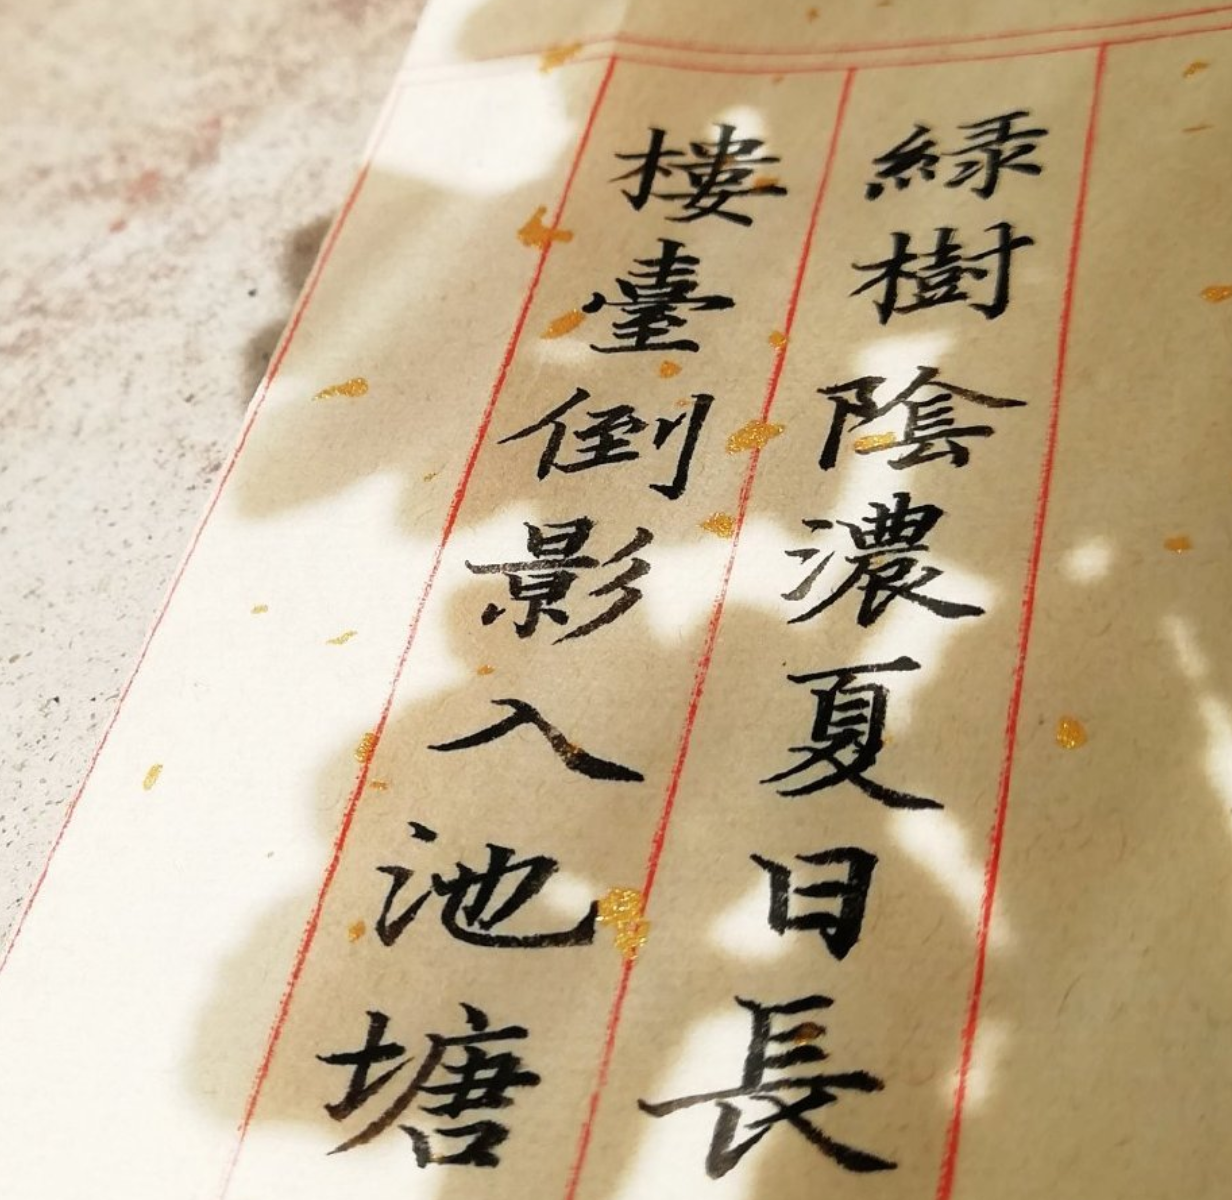 綠樹陰濃夏日長
樓臺倒影入池塘